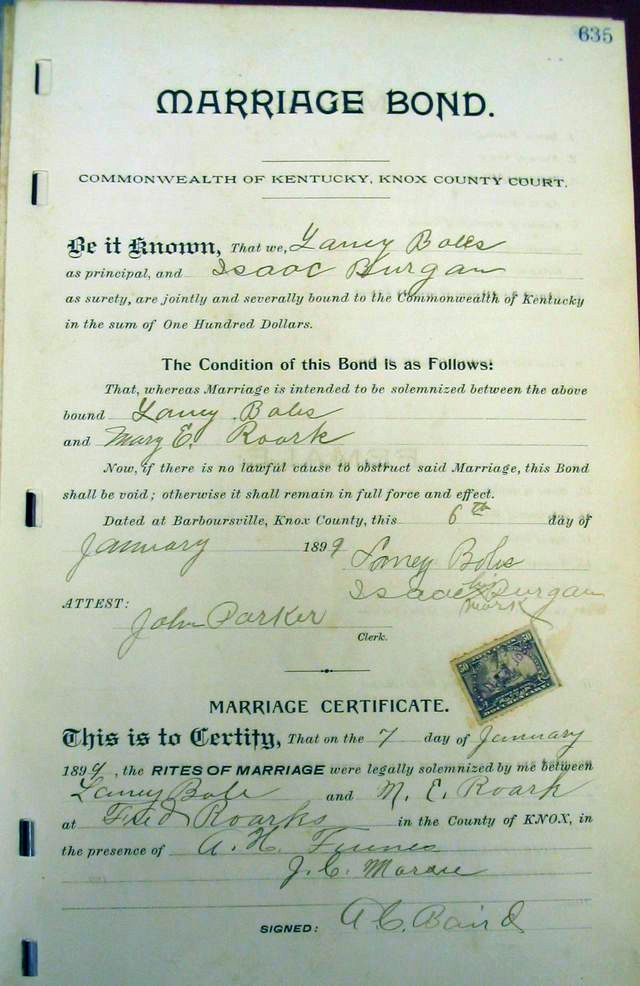 635
MARRIAGE BOND.
COMMONWEALTH OF KENTUCKY, KNOX COUNTY COURT.
Be it Known, That we, Laney Boles
as principal, and Isaac Burgan
as surety, are jointly and severally bound to the Commonwealth of Kentucky
in the sum of One Hundred Dollars.
The Condition of this Bond is as Follows:
That, whereas Marriage is intended to be solemnized between the above
bound Laney Boles
and Mary E. Roark
Now, if there is no lawful cause to obstruct said Marriage, this Bond
shall be void; otherwise it shall remain in full force and effect.
Dated at Barboursville, Knox County, this 6th day of
January 1899 Laney Boles
Isaac his Burgan
mark
ATTEST:
John Parker
Clerk.
MARRIAGE CERTIFICATE.
This is to Certify, That on the 7 day of January
1899, the RITES OF MARRIAGE were legally solemnized by me between
Laney Bole and M. E. Roark
at Roarks in the County of KNOX, in
the presence of A. H.
J. C.
SIGNED: A C. Baird